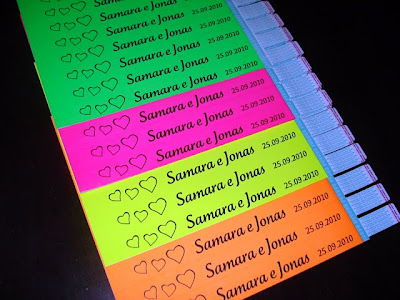 Samara e Jonas 25.09.2010
Samara e Jonas 25.09.2010
Samara e Jonas 25.09.2010
Samara e Jonas 25.09.2010
Samara e Jonas 25.09.2010
Samara e Jonas 25.09.2010
Samara e Jonas 25.09.2010
Samara e Jonas 25.09.2010
Samara e Jonas 25.09.2010
Samara e Jonas 25.09.2010
Samara e Jonas 25.09.2010
Samara e Jonas 25.09.2010
Samara e Jonas 25.09.2010
Samara e Jonas 25.09.2010
Samara e Jonas